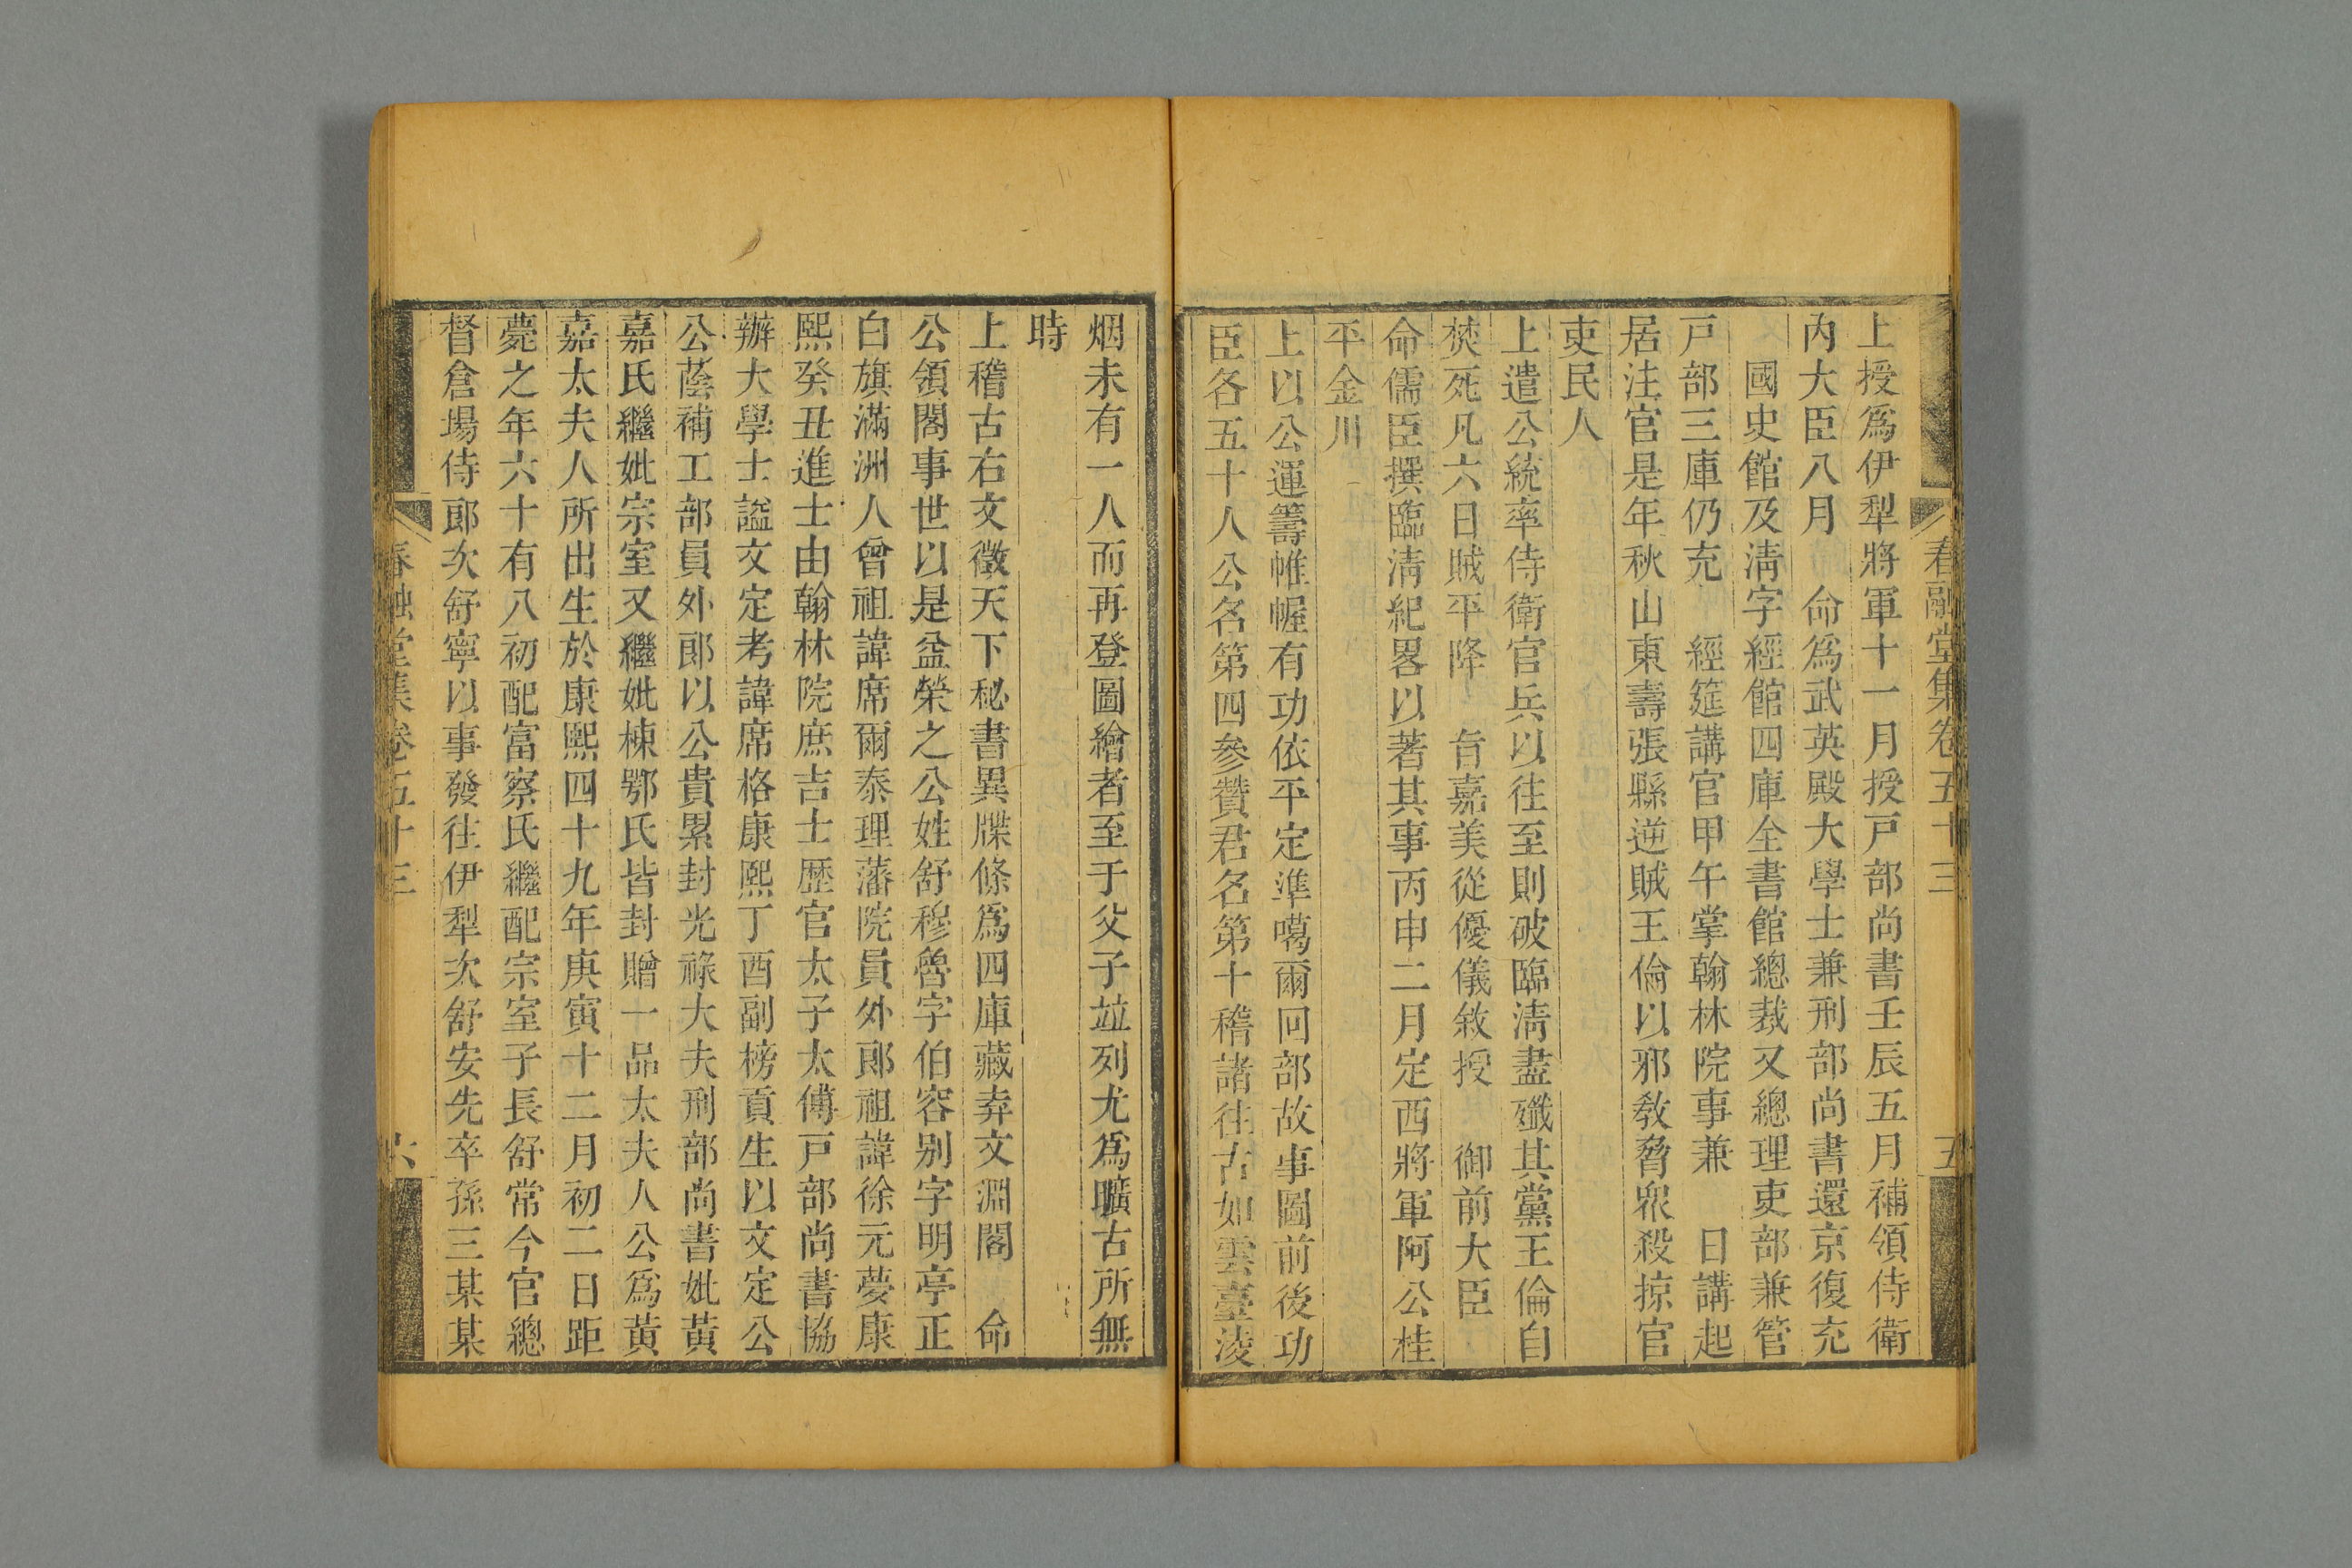 春融堂集卷五十三　五
上授爲伊犁將軍十一月授戸部尚書壬辰五月補領侍衛
內大臣八月　命爲武英殿大學士兼刑部尚書還京復充
　國史館及淸字經館四庫全書館總裁又總理吏部兼管
戸部三庫仍充　經筵講官甲午掌翰林院事兼　日講起
居注官是年秋山東壽張縣逆賊王倫以邪敎脅衆殺掠官
吏民人
上遣公統率侍衛官兵以往至則破臨淸盡殲其黨王倫自
焚死凡六日賊平降　旨嘉美從優儀敘授　御前大臣
命儒臣撰臨淸紀畧以著其事丙申二月定西將軍阿公桂
平金川
上以公運籌帷幄有功依平定準噶爾回部故事圖前後功
臣各五十人公名第四參贊君名第十稽諸往古如雲臺淩
烟未有一人而再登圖繪者至于父子竝列尤爲曠古所無
時
上稽古右文徵天下秘書異牒條爲四庫藏弆文淵閣　命
公領閣事世以是益榮之公姓舒穆魯字伯容别字明亭正
白旗滿洲人曾祖諱席爾泰理藩院員外郎祖諱徐元夢康
熙癸丑進士由翰林院庶吉士歴官太子太傅戸部尚書協
辦大學士諡文定考諱席格康熙丁酉副榜貢生以文定公
公蔭補工部員外郎以公貴累封光祿大夫刑部尚書妣黄
嘉氏繼妣宗室又繼妣棟鄂氏皆封贈一品太夫人公爲黄
嘉太夫人所出生於康熙四十九年庚寅十二月初二日距
薨之年六十有八初配富察氏繼配宗室子長舒常今官總
督倉場侍郎次舒寧以事發往伊犁次舒安先卒孫三某某
春融堂集卷五十三　六